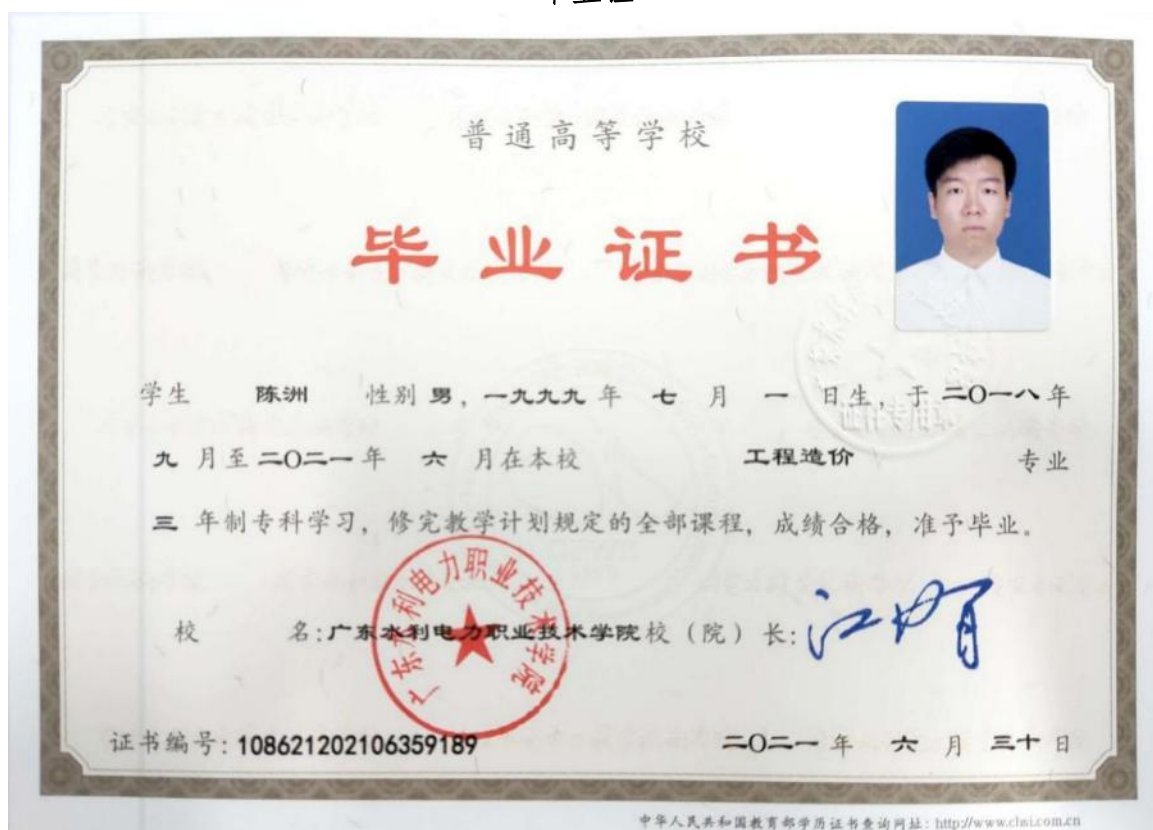 普通高等学校
毕业证书
学生 陈洲 性别 男，一九九九 年 七 月 一 日生，于 二〇一八 年
九 月至 二〇二一 年 六 月在本校 工程造价 专业
三 年制专科学习，修完教学计划规定的全部课程，成绩合格，准予毕业。
校 名：广东水利电力职业技术学院 校（院）长：
广东水利电力职业技术学院
证书编号：108621202106359189 二〇二一 年 六 月 三十 日
中华人民共和国教育部学历证书查询网址：http://www.chsi.com.cn